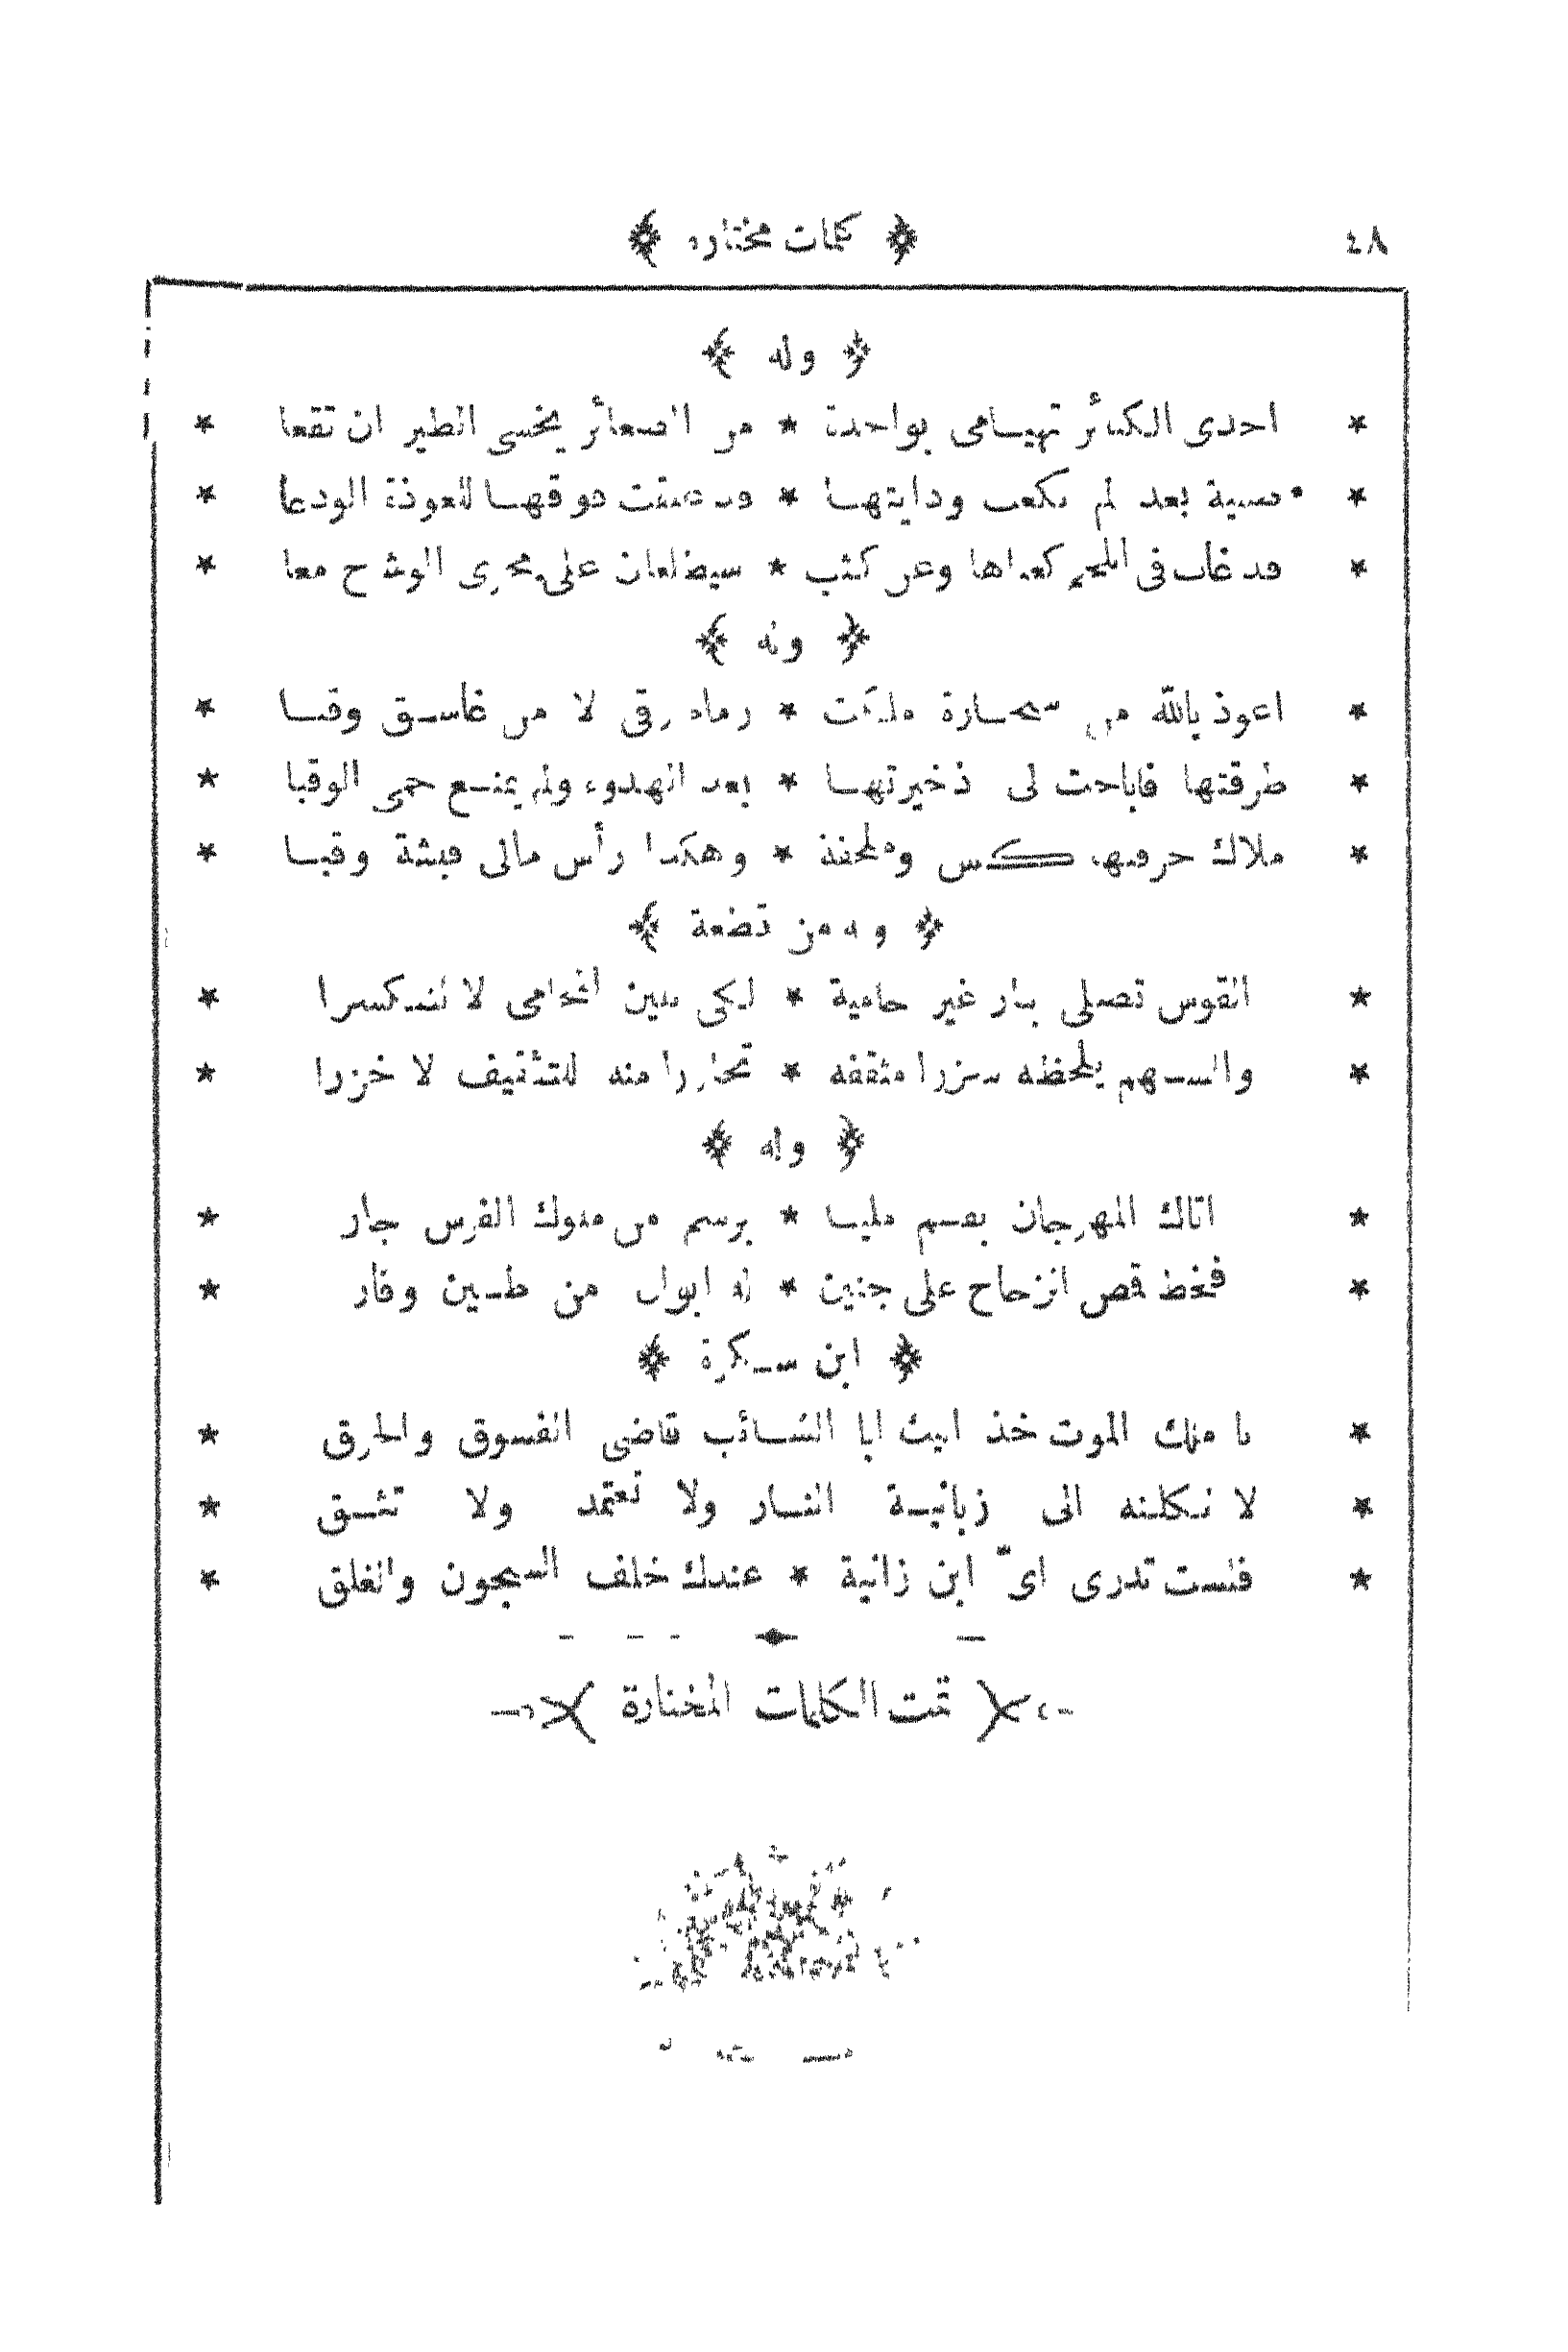 ٤٨ ﴿ كلمات مختاره ﴾
﴿ وله ﴾
★ احدى الكبائر تهيامى بواحدة ★ من الصغائر يخشى الطير ان تقعا ★
★ صبية بعد لم تكعب ودايتها ★ قد علقت فوقها للعوذة الودعا ★
★ قد غاب فى اللحم كعباها وعن كثب ★ سيضلعان على مجرى الوشح معا ★
﴿ وله ﴾
★ اعوذ بالله من سحارة ملكت ★ زمام رقى لا من غاسق وقبا ★
★ طرقتها فاباحت لى ذخيرتها ★ بعد الهدوء ولم يمنع حمى الوقبا ★
★ ملاك حرفتها كس وملحفة ★ وهكذا رأس مالى فيشة وقبا ★
﴿ وله من قطعة ﴾
★ القوس تصلى بنار غير حامية ★ لكى تلين المحامى لا لتنكسرا ★
★ والسهم يلحظه شزرا مثقفه ★ تحازرا منه للتثقيف لا خزرا ★
﴿ وله ﴾
★ اتاك المهرجان بقسم مليا ★ برسم من ملوك الفرس جار ★
★ فخط قص الزجاج على جنين ★ له ابوان من طين وقار ★
﴿ ابن سكرة ﴾
★ يا ملك الموت خذ اليك ابا السائب قاضى الفسوق والحرق ★
★ لا تكلنه الى زبانية النار ولا تعتمد ولا تثق ★
★ فلست تدرى اىّ ابن زانية ★ عندك خلف السجون والغلق ★
تمت الكلمات المختارة